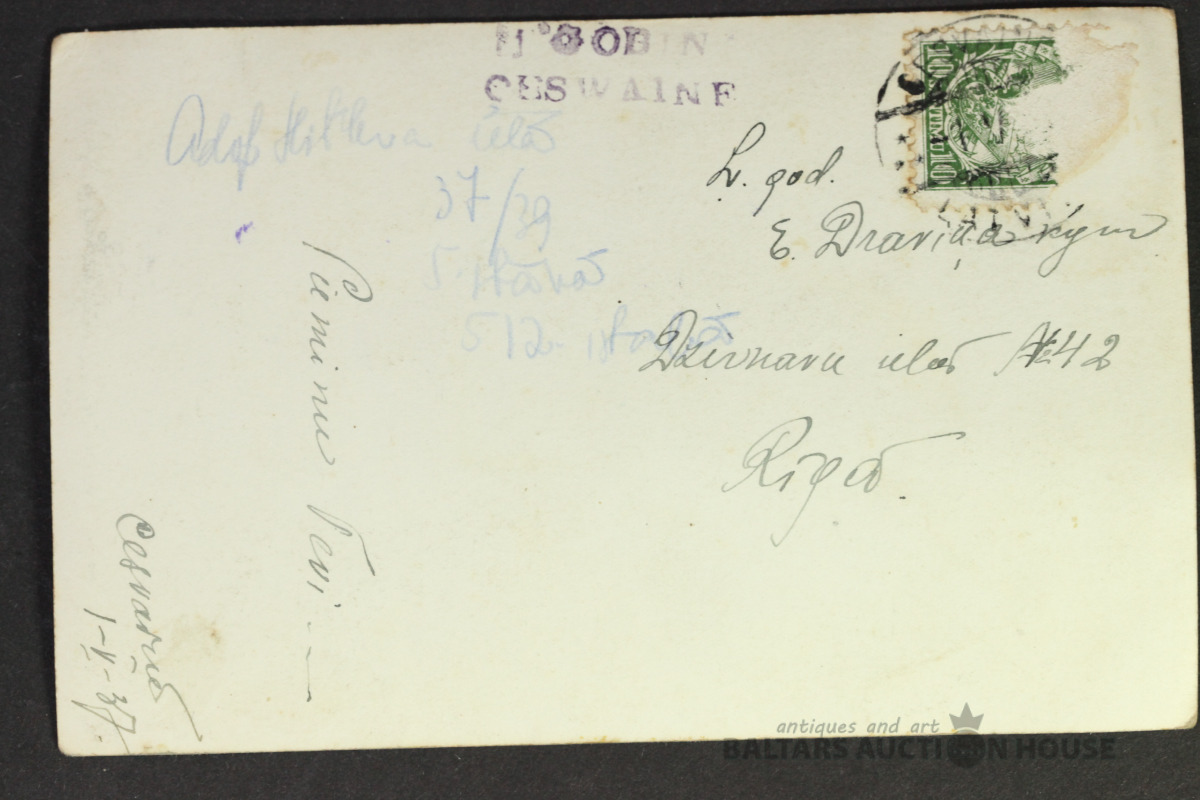 CESWAINE
Adolf Hitlera ielā
37/39
5. stāvā
512.
L. god.
E. Draviņa kgm
Dzirnavu ielā №42
Rīgā.
Piemini Tevi
Cesvainē
1-V-37.
LATVIJA
antiques and art
BALTARS AUCTION HOUSE